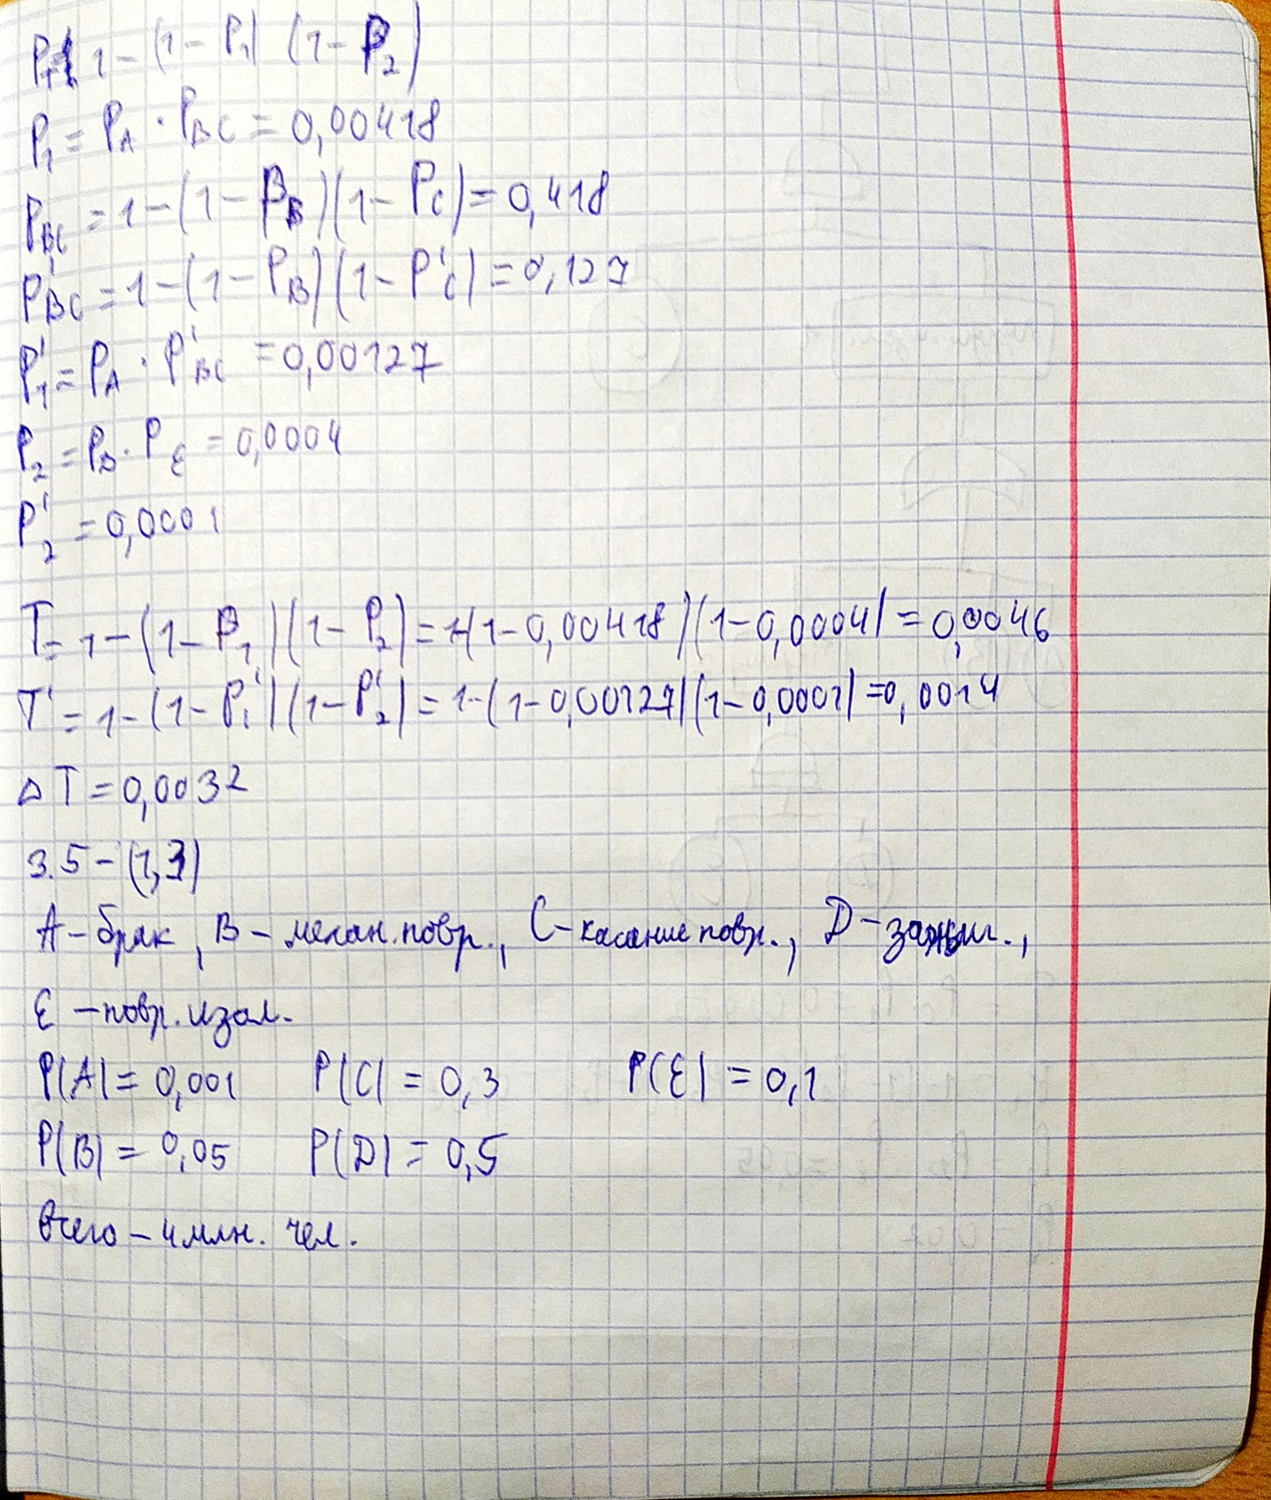 P_T = 1 - (1 - P_1) (1 - P_2)
P_1 = P_A · P_BC = 0,00418
P_BC = 1 - (1 - P_B)(1 - P_C) = 0,418
P'_BC = 1 - (1 - P_B)(1 - P'_C) = 0,127
P'_1 = P_A · P'_BC = 0,00127
P_2 = P_D · P_E = 0,0004
P'_2 = 0,0001
T = 1 - (1 - P_1)(1 - P_2) = 1-(1-0,00418)(1-0,0004) = 0,0046
T' = 1 - (1 - P'_1)(1 - P'_2) = 1-(1-0,00127)(1-0,0001) = 0,0014
ΔT = 0,0032
3.5 - (1,3)
A - брак, B - механ. повр., C - касание повр., D - зажиг.,
E - повр. изол.
P(A) = 0,001 P(C) = 0,3 P(E) = 0,1
P(B) = 0,05 P(D) = 0,5
всего - 4 млн. чел.